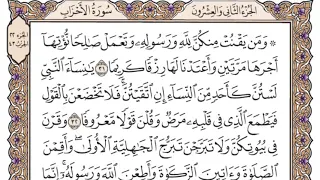 الجزء الثاني والعشرون
سورة الأحزاب
۞ وَمَن يَقْنُتْ مِنكُنَّ لِلَّهِ وَرَسُولِهِۦ وَتَعْمَلْ صَٰلِحًا نُّؤْتِهَآ
أَجْرَهَا مَرَّتَيْنِ وَأَعْتَدْنَا لَهَا رِزْقًا كَرِيمًا ٣١ يَٰنِسَآءَ ٱلنَّبِيِّ
لَسْتُنَّ كَأَحَدٍ مِّنَ ٱلنِّسَآءِ إِنِ ٱتَّقَيْتُنَّ ۚ فَلَا تَخْضَعْنَ بِٱلْقَوْلِ
فَيَطْمَعَ ٱلَّذِي فِي قَلْبِهِۦ مَرَضٌ وَقُلْنَ قَوْلًا مَّعْرُوفًا ٣٢ وَقَرْنَ
فِي بُيُوتِكُنَّ وَلَا تَبَرَّجْنَ تَبَرُّجَ ٱلْجَٰهِلِيَّةِ ٱلْأُولَىٰ ۖ وَأَقِمْنَ
ٱلصَّلَوٰةَ وَءَاتِينَ ٱلزَّكَوٰةَ وَأَطِعْنَ ٱللَّهَ وَرَسُولَهُۥٓ ۚ إِنَّمَا